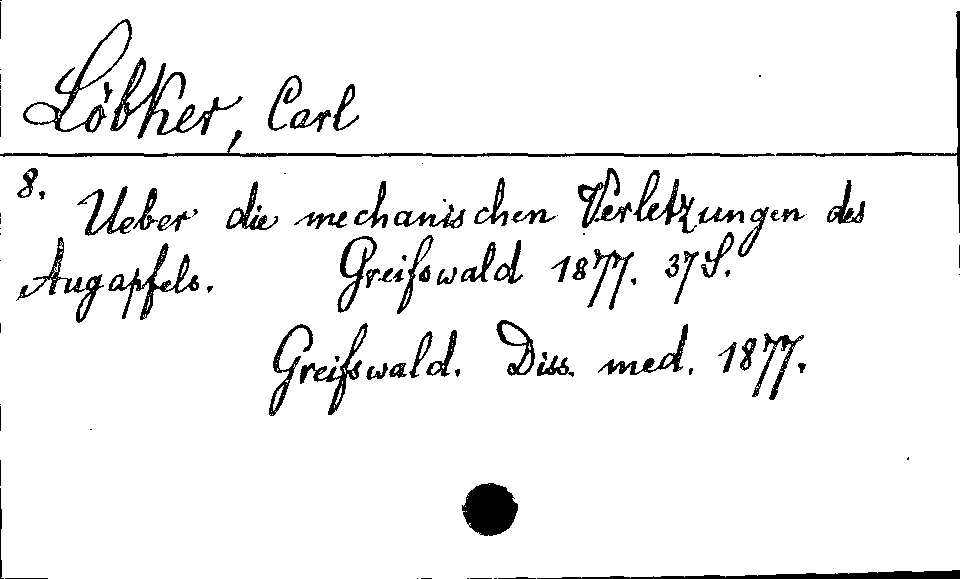 Löbker, Carl
8.
Ueber die mechanischen Verletzungen des
Augapfels. Greifswald 1877. 37 S.
Greifswald. Diss. med. 1877.